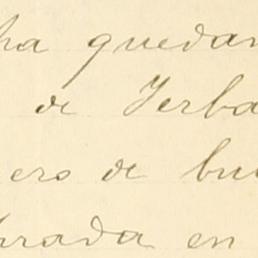 ha quedan
de Yerba
ero de bu
brada en